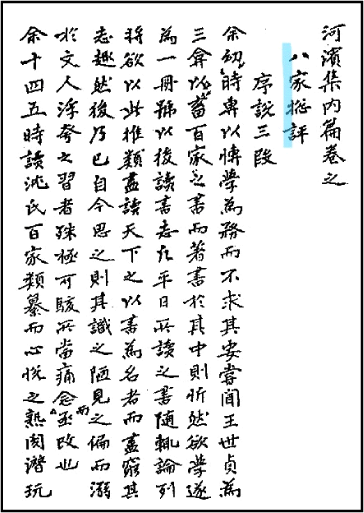 河濱集內篇卷之
八家摠評
序說三段
余幼時專以博學爲務而不求其要嘗聞王世貞爲
三弇以蓄百家之書而著書於其中則忻然欲學遂
爲一冊號以後讀書志凡平日所讀之書隨輒論列
將欲以此推類盡讀天下之以書爲名者而盡窮其
志趣然後乃已自今思之則其識之陋見之偏而溺
於文人浮夸之習者殊極可駭所當痛念而亟改也
余十四五時讀沈氏百家類纂而心悅之熟閱潛玩